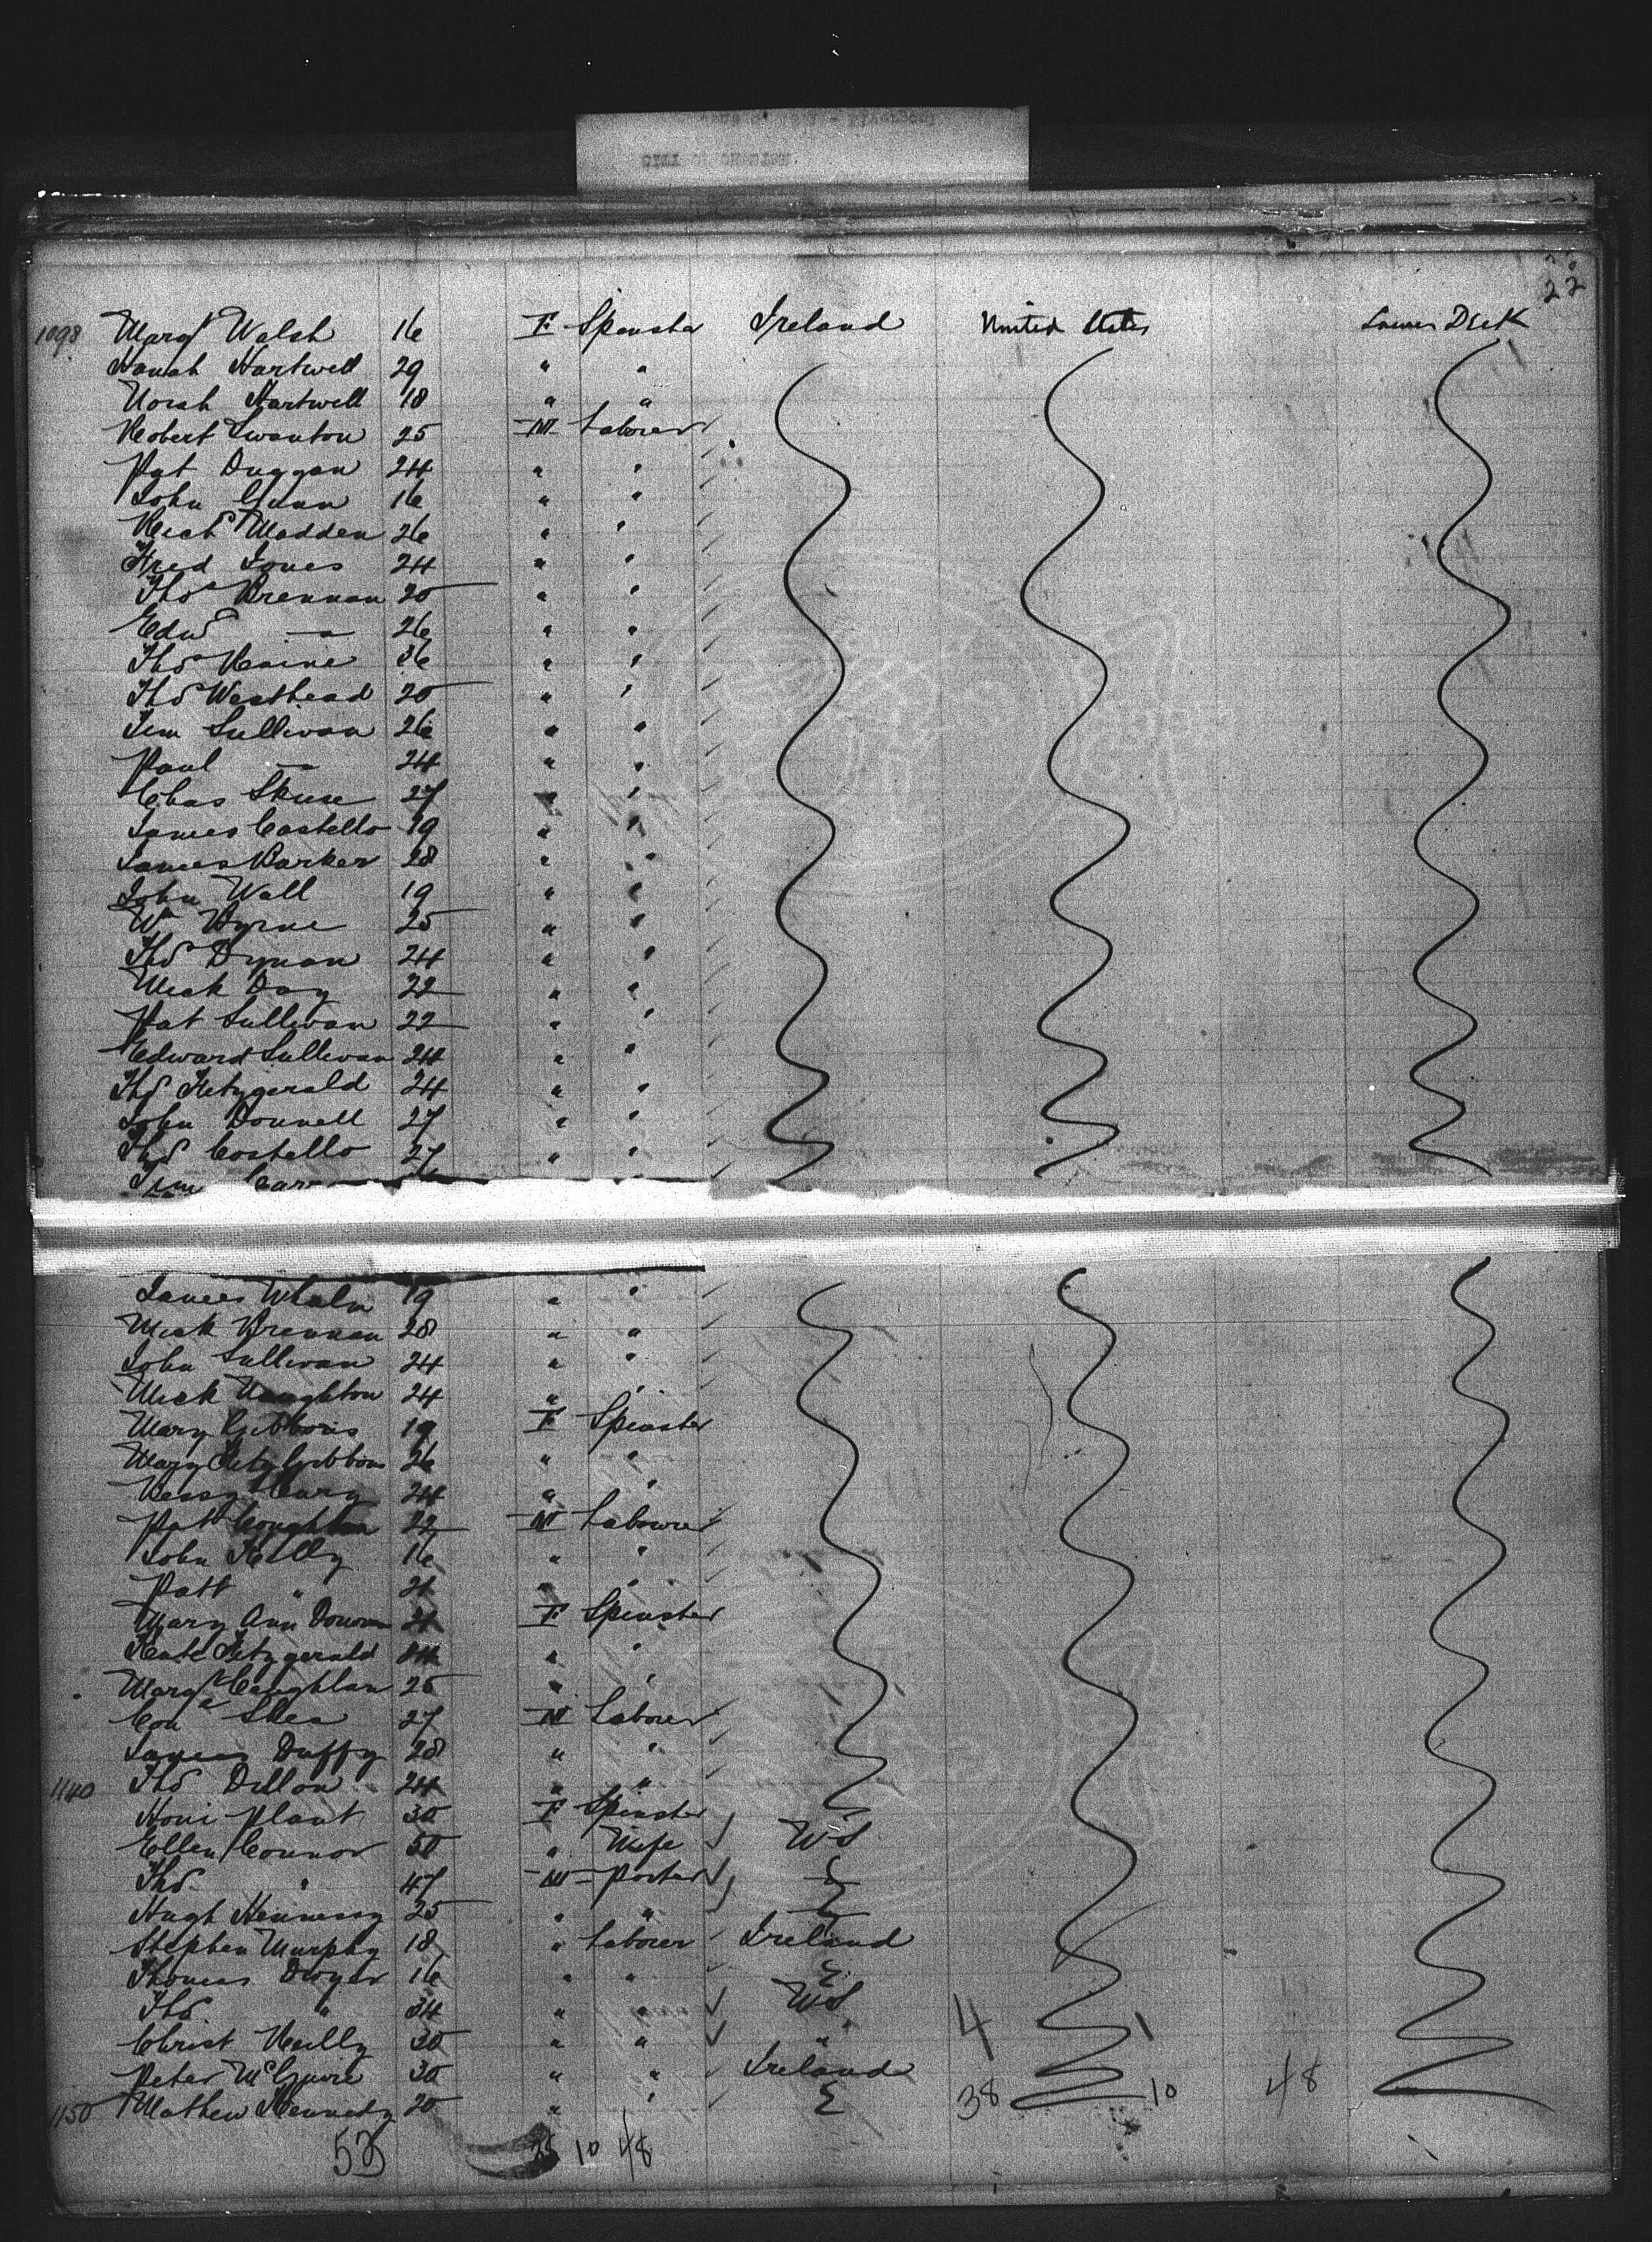 22
1098 Margt Walsh 16 F Spinster Ireland United States Lower Deck
Hanah Hartwell 29 " "
Norah Hartwell 18 " "
Robert Swanton 25 M Laborer
Pat Duggan 24 " "
John Gunn 16 " "
Richd Madden 26 " "
Fred Jones 24 " "
Thos Brennan 20 " "
Edwd — 26 " "
Thos 36 " "
Thos Westhead 20 " "
Jim Sullivan 26 " "
Paul — 24 " "
Chas Skuse 27 " "
James Costello 19 " "
James Barker 28 " "
John Wall 19 " "
Wm Byrne 25 " "
Thos Dynan 24 " "
Mick Day 22 " "
Pat Sullivan 22 " "
Edward Sullivan 24 " "
Thos Fitzgerald 24 " "
John Donnell 27 " "
Thos Costello 27 " "
Jim
James Whaln 19 " "
Mick Brennan 28 " "
John Sullivan 24 " "
Mick Naughton 24 " "
Mary Gibbons 19 F Spinster
Mary FitzGibbon 26 " "
24 " "
Pat Coughlan 22 M Labourer
John Kelly 16 " "
Patt " 21 " "
Mary Ann Donovan 21 F Spinster
Kate Fitzgerald " "
Margt Coughlan 25 " "
Con Shea 27 M Laborer
James Duffy 28 " "
1140 Thos Dillon 24 " "
Honi Plant 30 F Spinster
Ellen Connor 50 " Wife US
Thos " 47 M Porter
Hugh Hennessy 25 " "
Stephen Murphy 18 " Laborer Ireland
Thomas Dwyer 16 " "
Thos " 34 " " US 4 1
Christ Reilly 30 " " "
Peter McGuire 30 " " Ireland
1150 Mathew Kennedy 20 " " 38 10 48
53 38 10 48